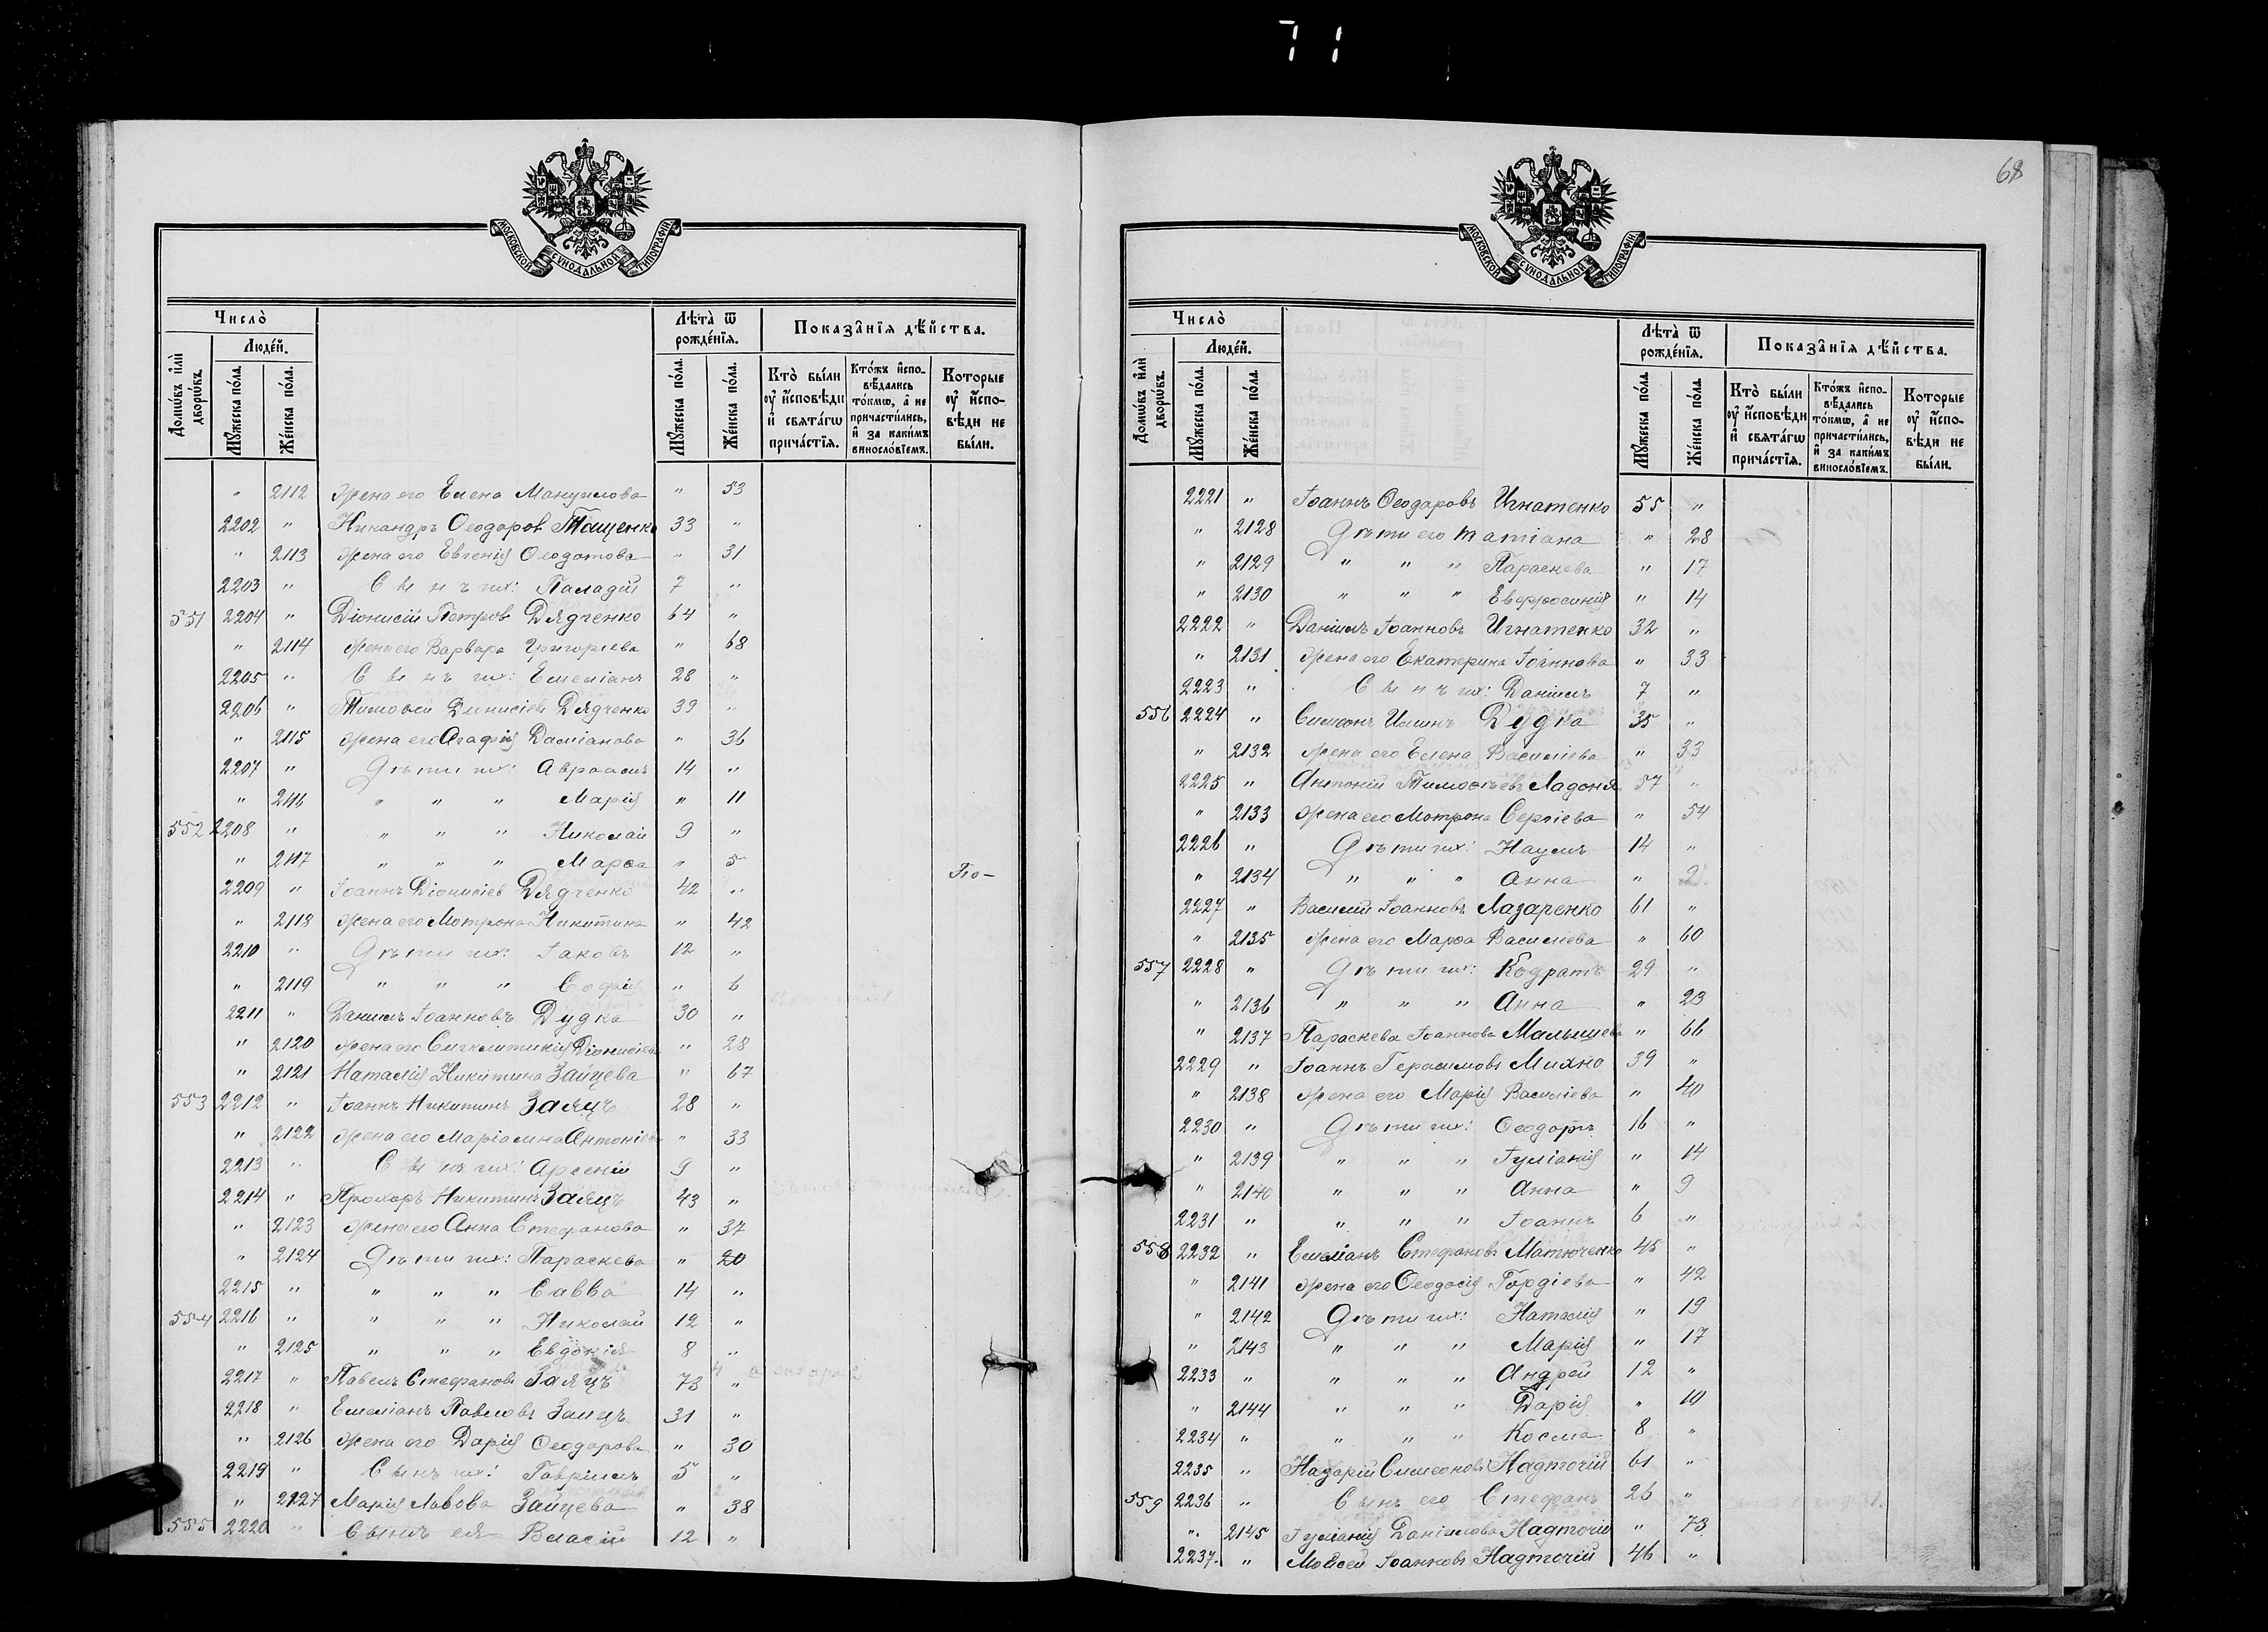 71
68
МОСКОВСКОЙ СѴНОДАЛЬНОЙ ТИПОГРАФІИ
Число̀
Людей.
Домѡвъ и҆лѝ дворѡвъ.
Мꙋжеска по́ла.
Же́нска по́ла.
Лѣта̀ ѿ рожде́нїѧ.
Мꙋжеска по́ла.
Же́нска по́ла.
Показа̑нїѧ дѣйства.
Кто̀ бы́ли ᲂу҆ и҆сповѣди и҆ свѧта́гѡ прича́стїѧ.
Кто́жъ и҆сповѣдались то́кмѡ, а҆ не причасти́лись, и҆ за каки́мъ винословїемъ.
Которые ᲂу҆ и҆сповѣди не бы́ли.
" 2112 Жена его Елена Мануилова " 53
2202 " Никандръ Ѳеодоров Тащенко 33 "
" 2113 Жена его Евгенія Ѳеодотова " 31
2203 " Сынъ их: Паладій 7 "
551 2204 " Діонисій Петров Дядченко 64 "
" 2114 Жена его Варвара Григоріева " 68
2205 " Сынъ их: Емеліанъ 28 "
2206 " Тимоѳей Динисіев Дядченко 39 "
" 2115 Жена его Агафія Даміанова " 36
2207 " Дѣти их: Авраамъ 14 "
" 2116 " " " Марія " 11
552 2208 " " " " Николай 9 "
" 2117 " " " Марѳа " 5
2209 " Іоаннъ Діонисіев Дядченко 42 "
" 2118 Жена его Мотрона Никитина " 42
2210 " Дѣти их: Іаковъ 12 "
" 2119 " " " Софія " 6
2211 " Даніилъ Іоанновъ Дудка 30 "
" 2120 Жена его Сигклитикія Діонисіева " 28
" 2121 Наталія Никитина Зайцева " 67
553 2212 " Іоаннъ Никитинъ Заяцъ 28 "
" 2122 Жена его Маріамна Антоніева " 33
2213 " Сынъ их: Арсеній 9 "
2214 " Прохоръ Никитинъ Заяцъ 43 "
" 2123 Жена его Анна Стефанова " 37
" 2124 Дѣти их: Параскева " 20
2215 " " " " Савва 14 "
554 2216 " " " " Николай 12 "
" 2125 " " " Евдокія 8 "
2217 " Павелъ Стефановъ Заяцъ 73 "
2218 " Емеліанъ Павловъ Заяцъ 31 "
" 2126 Жена его Дарія Ѳеодорова " 30
2219 " Сынъ их: Гавріилъ 5 "
" 2127 Марія Львова Зайцева " 38
555 2220 " Сынъ ея Власій 12 "
МОСКОВСКОЙ СѴНОДАЛЬНОЙ ТИПОГРАФІИ
Число̀
Людей.
Домѡвъ и҆лѝ дворѡвъ.
Мꙋжеска по́ла.
Же́нска по́ла.
Лѣта̀ ѿ рожде́нїѧ.
Мꙋжеска по́ла.
Же́нска по́ла.
Показа̑нїѧ дѣйства.
Кто̀ бы́ли ᲂу҆ и҆сповѣди и҆ свѧта́гѡ прича́стїѧ.
Кто́жъ и҆сповѣдались то́кмѡ, а҆ не причасти́лись, и҆ за каки́мъ винословїемъ.
Которые ᲂу҆ и҆сповѣди не бы́ли.
2221 " Іоаннъ Ѳеодоровъ Игнатенко 55 "
" 2128 Дѣти его Татіана " 28
" 2129 " " " Параскева " 17
" 2130 " " " Евфросинія " 14
2222 " Даніилъ Іоанновъ Игнатенко 32 "
" 2131 Жена его Екатерина Іоаннова " 33
2223 " Сынъ их: Даніилъ 7 "
556 2224 " Симеонъ Илинъ Дудка 35 "
" 2132 Жена его Елена Василіева " 33
2225 " Антоній Тимоѳѣевъ Ладоня 57 "
" 2133 Жена его Мотрона Сергіева " 54
2226 " Дѣти их: Наумъ 14 "
" 2134 " " " Анна "
2227 " Василій Іоанновъ Лазаренко 61 "
" 2135 Жена его Марѳа Василіева " 60
557 2228 " Дѣти их: Кодратъ 29 "
" 2136 " " " Анна " 23
" 2137 Параскева Іоаннова Малышева " 66
2229 " Іоаннъ Герасимовъ Михно 39 "
" 2138 Жена его Марія Василіева " 40
2230 " Дѣти их: Ѳеодоръ 16 "
" 2139 " " " Іуліанія " 14
" 2140 " " " Анна " 9
2231 " " " " Іоаннъ 6 "
558 2232 " Емеліанъ Стефановъ Матюченко 45 "
" 2141 Жена его Ѳеодосія Гордіева " 42
" 2142 Дѣти их: Наталія " 19
" 2143 " " " Марія " 17
2233 " " " " Андрей 12 "
" 2144 " " " Дарія " 10
2234 " " " " Косма 8 "
2235 " Назарій Симеоновъ Надточій 61 "
559 2236 " Сынъ его Стефанъ 26 "
" 2145 Іуліанія Даніилова Надточій " 73
2237 " Моисей Іоанновъ Надточій 46 "